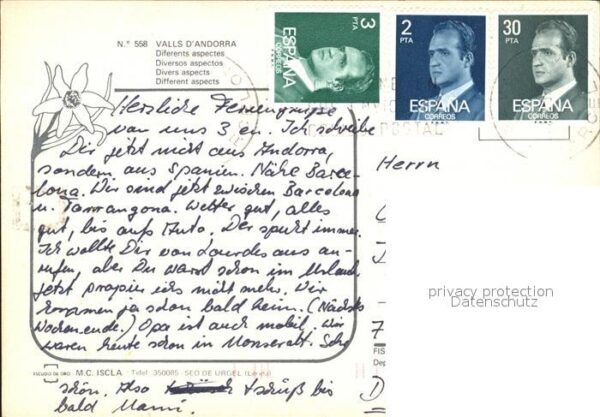 N.º 558 VALLS D'ANDORRA
Diferents aspectes
Diversos aspectos
Divers aspects
Different aspects
3 PTA
ESPAÑA
CORREOS
2 PTA
ESPAÑA
CORREOS
30 PTA
ESPAÑA
CORREOS
POSTAL
Herzliche Feriengrüsse
von uns 3 en. Ich schreibe
Dir jetzt nicht aus Andorra,
sondern aus Spanien. Nähe Barce-
lona. Wir sind jetzt zwischen Barcelona
u. Tarrangona. Wetter gut, alles
gut, bis aufs Auto. Der spukt immer.
Ich wollte Dir von Lourdes aus an-
rufen, aber Du warst schon im Urlaub,
jetzt probier ichs nicht mehr. Wir
kommen ja schon bald heim. (Nächstes
Wochenende.) Opa ist auch mobil. Wir
waren heute schon in Monserat. Sehr
schön. Also tschüß bis
bald Mami.
Herrn
privacy protection
Datenschutz
7
FIS
Dep
D
ESCUDO DE ORO M.C. ISCLA - Tldef. 350085 SEO DE URGEL (Lérida)